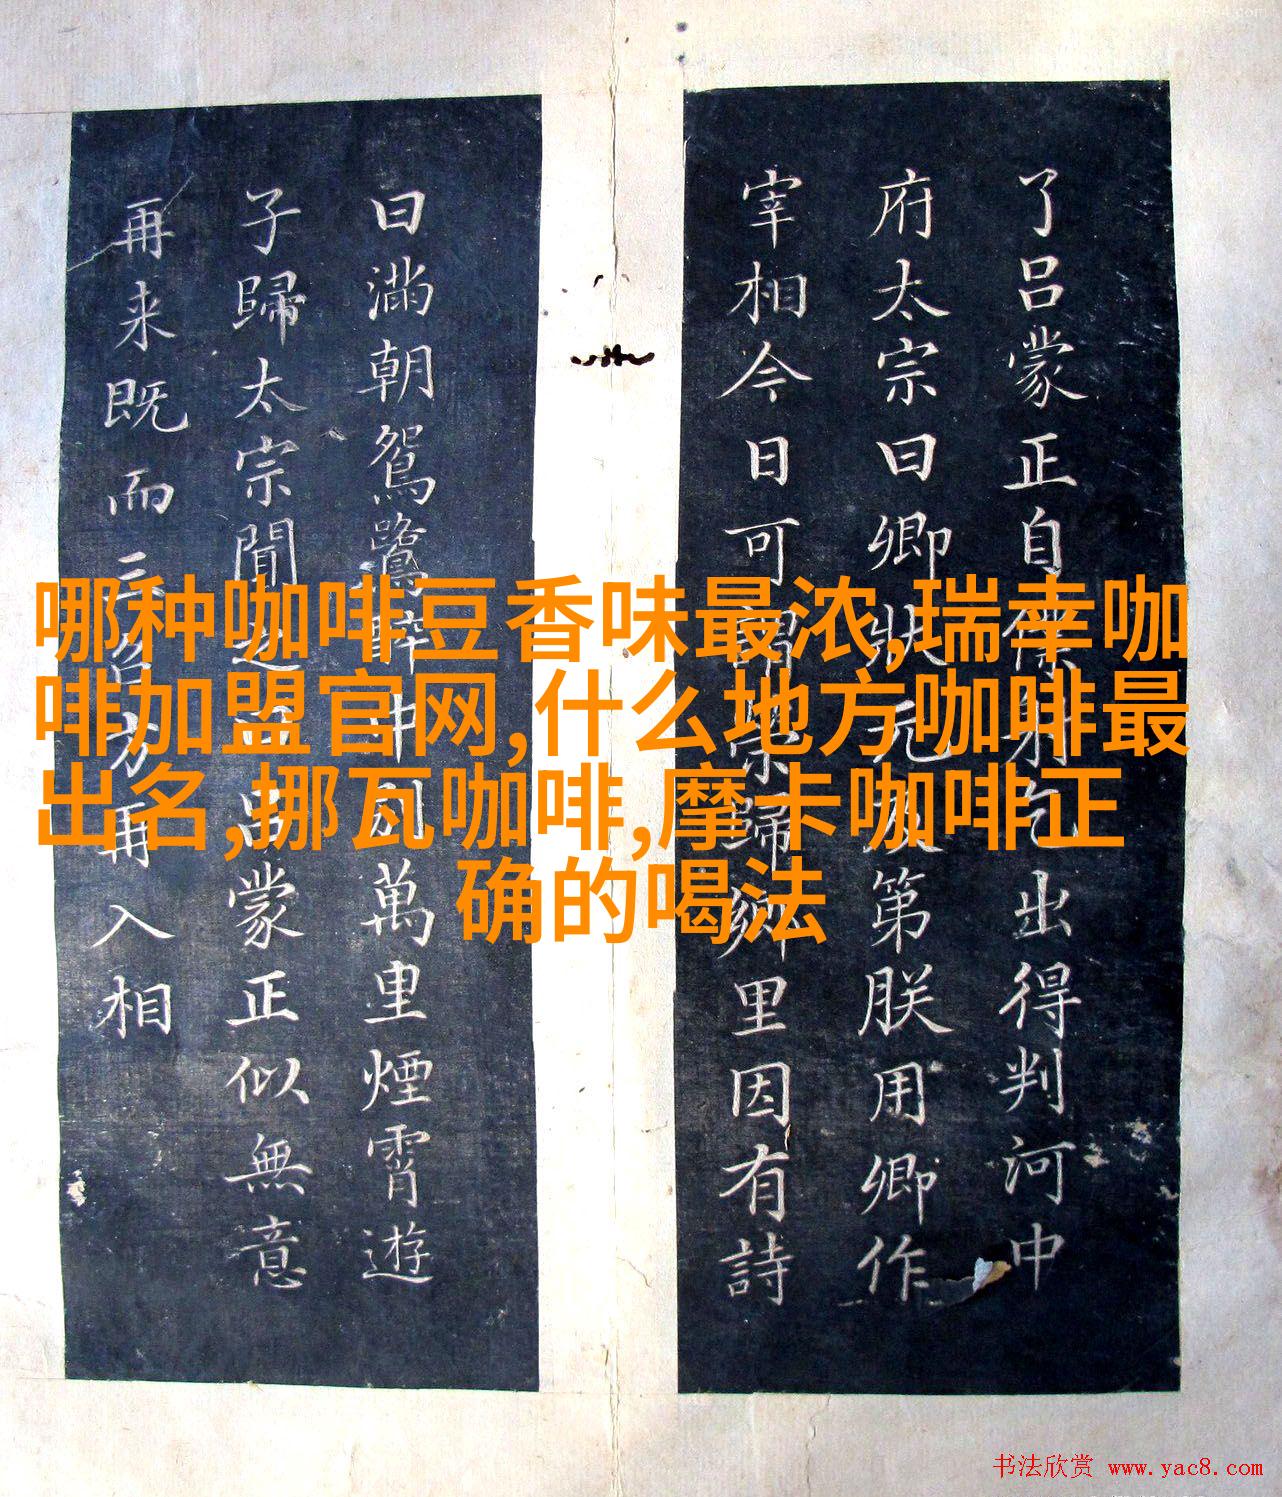 了呂蒙正自僕射乞出得判河中
府太宗曰卿狀元及第朕用卿作
宰相今日可謂榮歸鄉里因有詩
曰滿朝鴛鷺醉中別萬里煙霄遊
子歸太宗聞之曰呂蒙正似無意
再来既而三召方再入相
哪种咖啡豆香味最浓,瑞幸咖
啡加盟官网,什么地方咖啡最
出名,挪瓦咖啡,摩卡咖啡正
确的喝法
书法欣赏 www.yac8.com